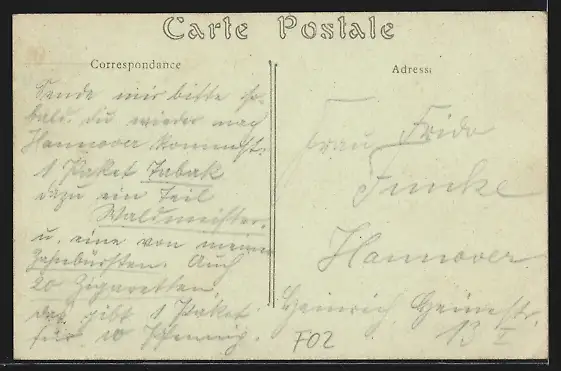 Carte Postale
Correspondance
Adresse
Sende mir bitte so-
bald du wieder nach
Hannover kommst:
1 Paket Tabak
dazu ein Teil
Waldmeister.
u. eine von meinen
Zahnbürsten. Auch
20 Zigaretten,
das gibt 1 Paket
für 10 Pfennig.
Frau Frida
Funke
Hannover
Heinrich Heinestr.
13 I
F02